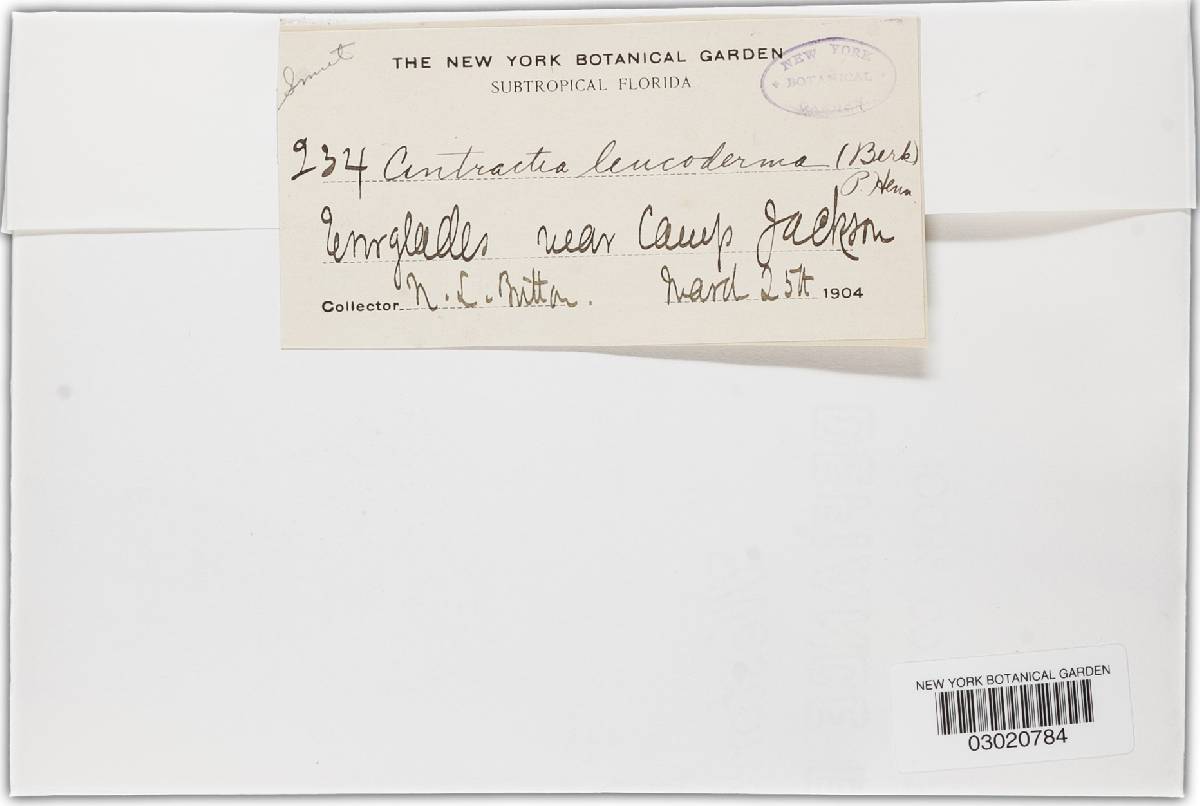 Smut
THE NEW YORK BOTANICAL GARDEN
SUBTROPICAL FLORIDA
NEW YORK
BOTANICAL
GARDEN
234 Cintractia leucoderma (Berk)
P. Henn.
Everglades near Camp Jackson
Collector N. L. Britton. March 25th 1904
NEW YORK BOTANICAL GARDEN
03020784